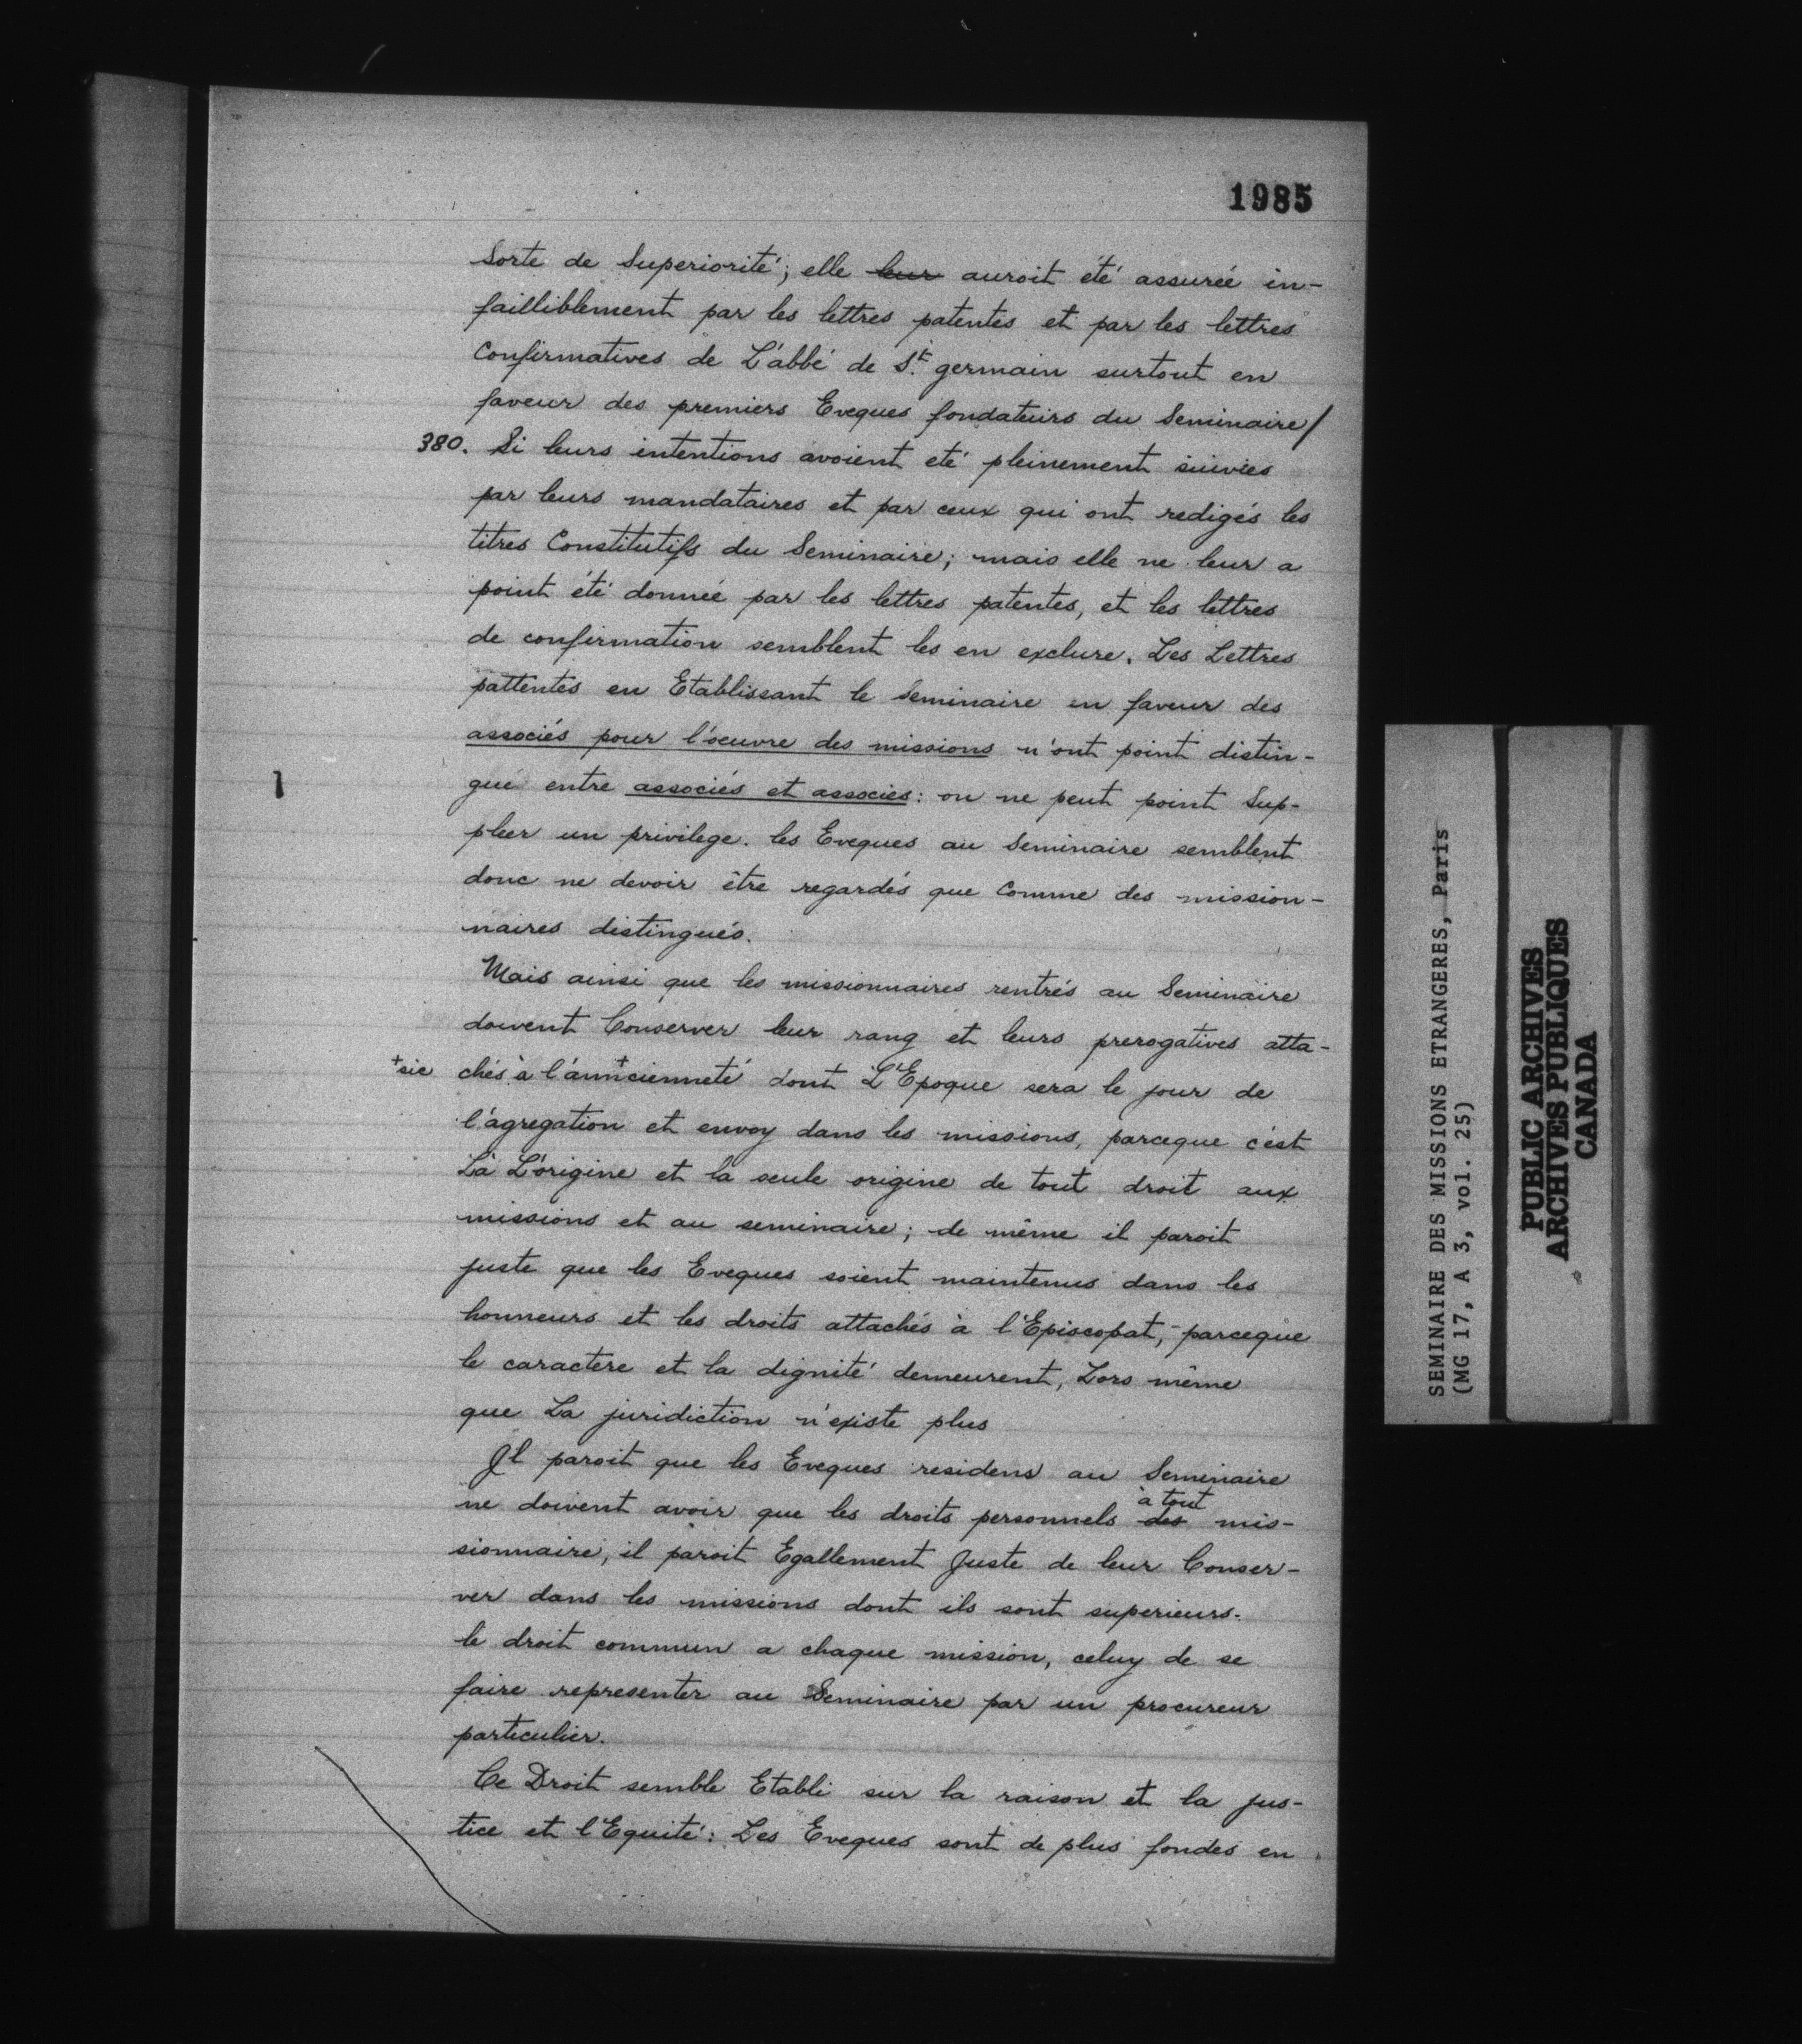 1985
Sorte de Superiorité; elle leur auroit été assurée in-
failliblement par les lettres patentes et par les lettres
Confirmatives de L'abbé de St. germain surtout en
faveur des premiers Eveques fondateurs du Seminaire/
380. Si leurs intentions avoient eté pleinement suivies
par leurs mandataires et par ceux qui ont redigés les
titres Constitutifs du Seminaire; mais elle ne leur a
point été donnée par les lettres patentes, et les lettres
de confirmation semblent les en exclure. Les Lettres
pattentes en Etablissant le Seminaire en faveur des
associés pour l'oeuvre des missions n'ont point distin-
gué entre associés et associés: on ne peut point Sup-
pleer un privilege. les Eveques au Seminaire semblent
donc ne devoir être regardés que Comme des mission-
naires distingués.
Mais ainsi que les missionnaires rentrés au Seminaire
doivent Conserver leur rang et leurs prerogatives atta-
+sic chés à l'ann+cienneté dont L'Epoque sera le jour de
l'agregation et envoy dans les missions, parceque c'est
Là L'origine et la seule origine de tout droit aux
missions et au seminaire; de même il paroit
juste que les Eveques soient maintenus dans les
honneurs et les droits attachés à l'Episcopat, parceque
le caractere et la dignité demeurent, Lors même
que La juridiction n'existe plus
Il paroit que les Eveques residens au Seminaire
à tout
ne doivent avoir que les droits personnels des mis-
sionnaire, il paroit Egallement Juste de leur Conser-
ver dans les missions dont ils sont superieurs.
le droit commun a chaque mission, celuy de se
faire representer au Seminaire par un procureur
particulier.
Ce Droit semble Etabli sur la raison et la jus-
tice et l'Equité: Les Eveques sont de plus fondes en
SEMINAIRE DES MISSIONS ETRANGERES, Paris
(MG 17, A 3, vol. 25)
PUBLIC ARCHIVES
ARCHIVES PUBLIQUES
CANADA